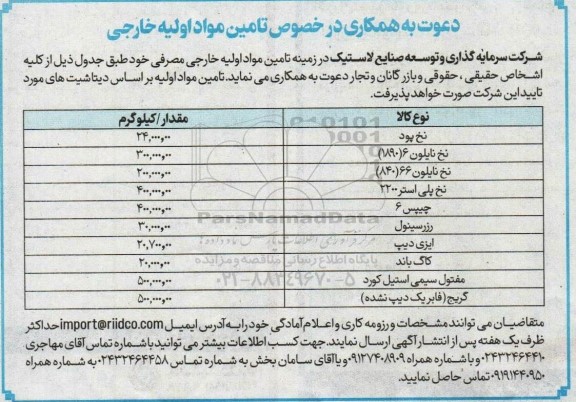 دعوت به همکاری در خصوص تامین مواد اولیه خارجی
شرکت سرمایه گذاری و توسعه صنایع لاستیک در زمینه تامین مواد اولیه خارجی مصرفی خود طبق جدول ذیل از کلیه
اشخاص حقیقی ، حقوقی و بازرگانان و تجار دعوت به همکاری می نماید. تامین مواد اولیه بر اساس دیتاشیت های مورد
تایید این شرکت صورت خواهد پذیرفت.
نوع کالا مقدار/کیلوگرم
نخ پود ۲۴,۰۰۰,۰۰
نخ نایلون ۶(۱۸۹۰) ۳۰۰,۰۰۰,۰۰
نخ نایلون ۶۶(۸۴۰) ۲۰۰,۰۰۰,۰۰
نخ پلی استر ۲۲۰۰ ۴۰۰,۰۰۰,۰۰
چیپس ۶ ۴۰۰,۰۰۰,۰۰
رزرسینول ۳۰,۰۰۰,۰۰
ایزی دیپ ۲۰,۷۰۰,۰۰
کاگ باند ۲۰,۰۰۰,۰۰
مفتول سیمی استیل کورد ۵۰۰,۰۰۰,۰۰
گریج(فابریک دیپ نشده) ۵۰۰,۰۰۰,۰۰
ParsNamadData
پایگاه اطلاع رسانی مناقصه و مزایده
۰۲۱-۸۸۳۴۹۶۷۰-۵
متقاضیان می توانند مشخصات و رزومه کاری و اعلام آمادگی خود را به آدرس ایمیل import@riidco.com حداکثر
ظرف یک هفته پس از انتشار آگهی ارسال نمایند. جهت کسب اطلاعات بیشتر می توانید با شماره تماس آقای مهاجری
۰۲۴۳۲۴۶۴۴۱۰ و با شماره همراه ۰۹۱۲۷۴۰۸۹۰۹ و یا آقای سامان بخش به شماره تماس ۰۲۴۳۲۴۶۴۴۵۸ به شماره همراه
۰۹۱۹۱۴۴۰۹۵۰ تماس حاصل نمایید.